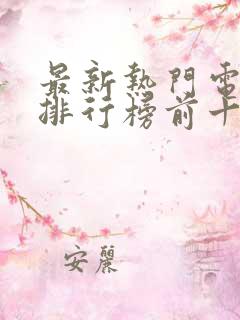 最新熱門電
排行榜前十
安麗